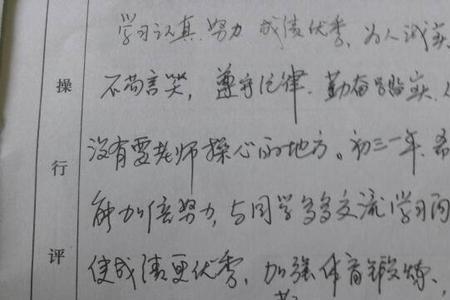 学习认真努力 成绩优秀、为人诚实
不苟言笑，遵守纪律、勤奋踏实、
没有要老师操心的地方。初三一年，希
能加倍努力，与同学多多交流学习
使成绩更优秀，加强体育锻炼、
操
行
评